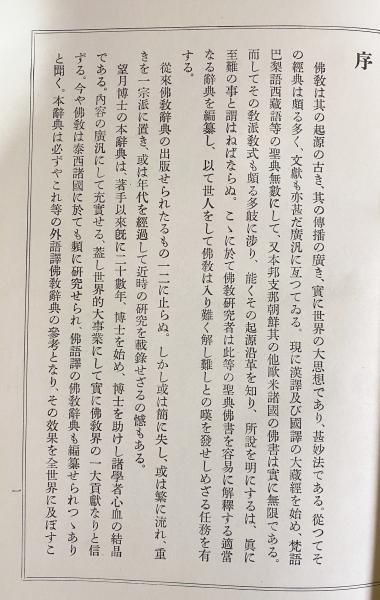 序
佛敎は其の起源の古き、其の傳播の廣き、實に世界の大思想であり、甚妙法である。從つてそ
の經典は頗る多く、文獻も亦甚だ廣汎に亙つてゐる。現に漢譯及び國譯の大藏經を始め、梵語
巴梨語西藏語等の聖典無數にして、又本邦支那朝鮮其の他歐米諸國の佛書は實に無限である。
而してその敎派敎式も頗る多岐に涉り、能くその起源沿革を知り、所說を明にするは、眞に
至難の事と謂はねばならぬ。こゝに於て佛敎硏究者は此等の聖典佛書を容易に解釋する適當
なる辭典を編纂し、以て世人をして佛敎は入り難く解し難しとの嘆を發せしめざる任務を有
する。
從來佛敎辭典の出版せられたるもの一二に止らぬ。しかし或は簡に失し、或は繁に流れ、重
きを一宗派に置き、或は年代を經過して近時の硏究を載錄せざるの憾もある。
望月博士の本辭典は、著手以來旣に二十數年、博士を始め、博士を助けし諸學者心血の結晶
である。內容の廣汎にして充實せる、蓋し世界的大事業にして實に佛敎界の一大貢獻なりと信
ずる。今や佛敎は泰西諸國に於ても頻に硏究せられ、佛語譯の佛敎辭典も編纂せられつゝあり
と聞く。本辭典は必ずやこれ等の外語譯佛敎辭典の參考となり、その效果を全世界に及ぼすこ
一